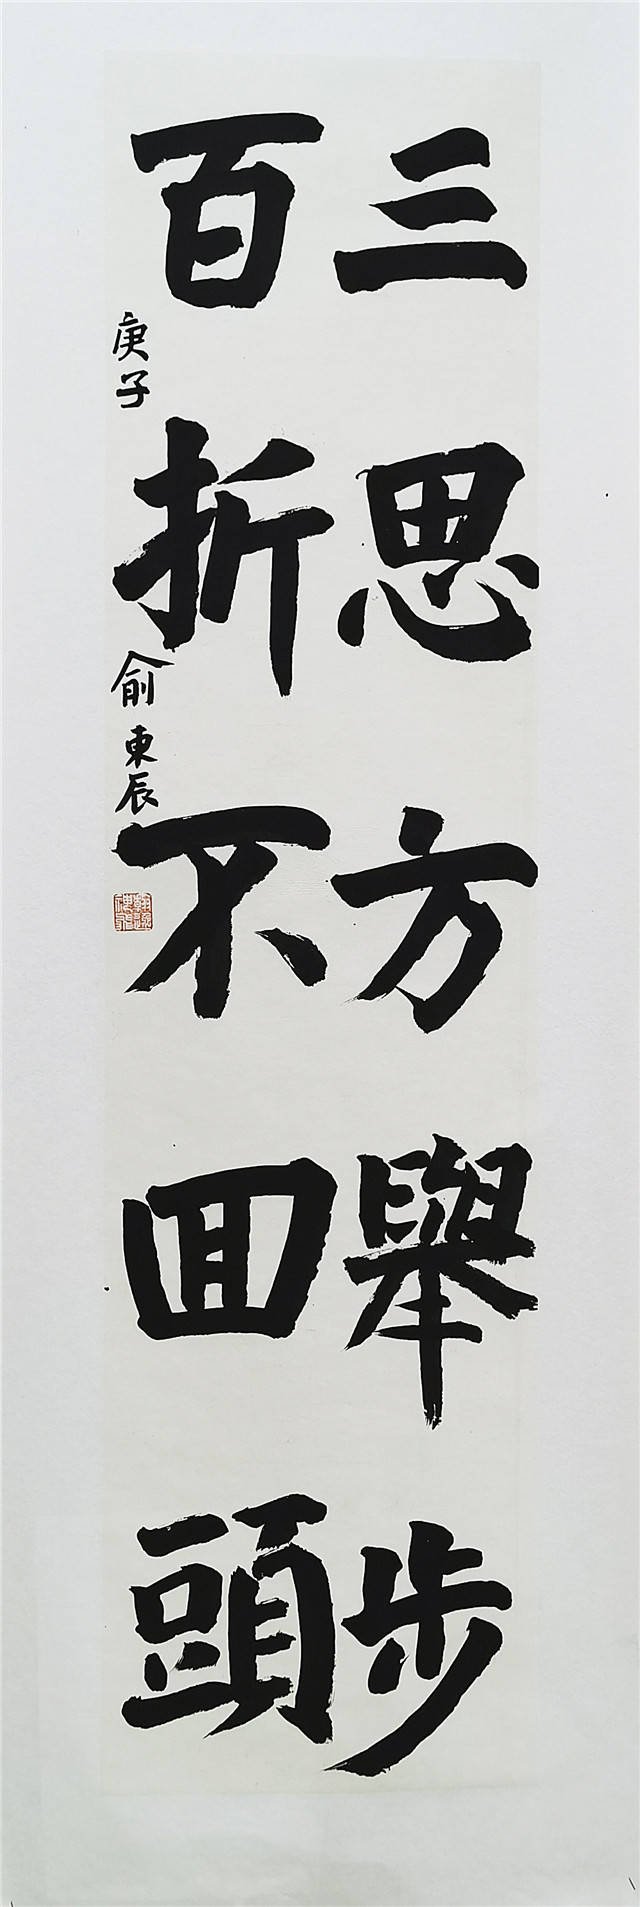 三思方舉步
百折不回頭
庚子
俞東辰